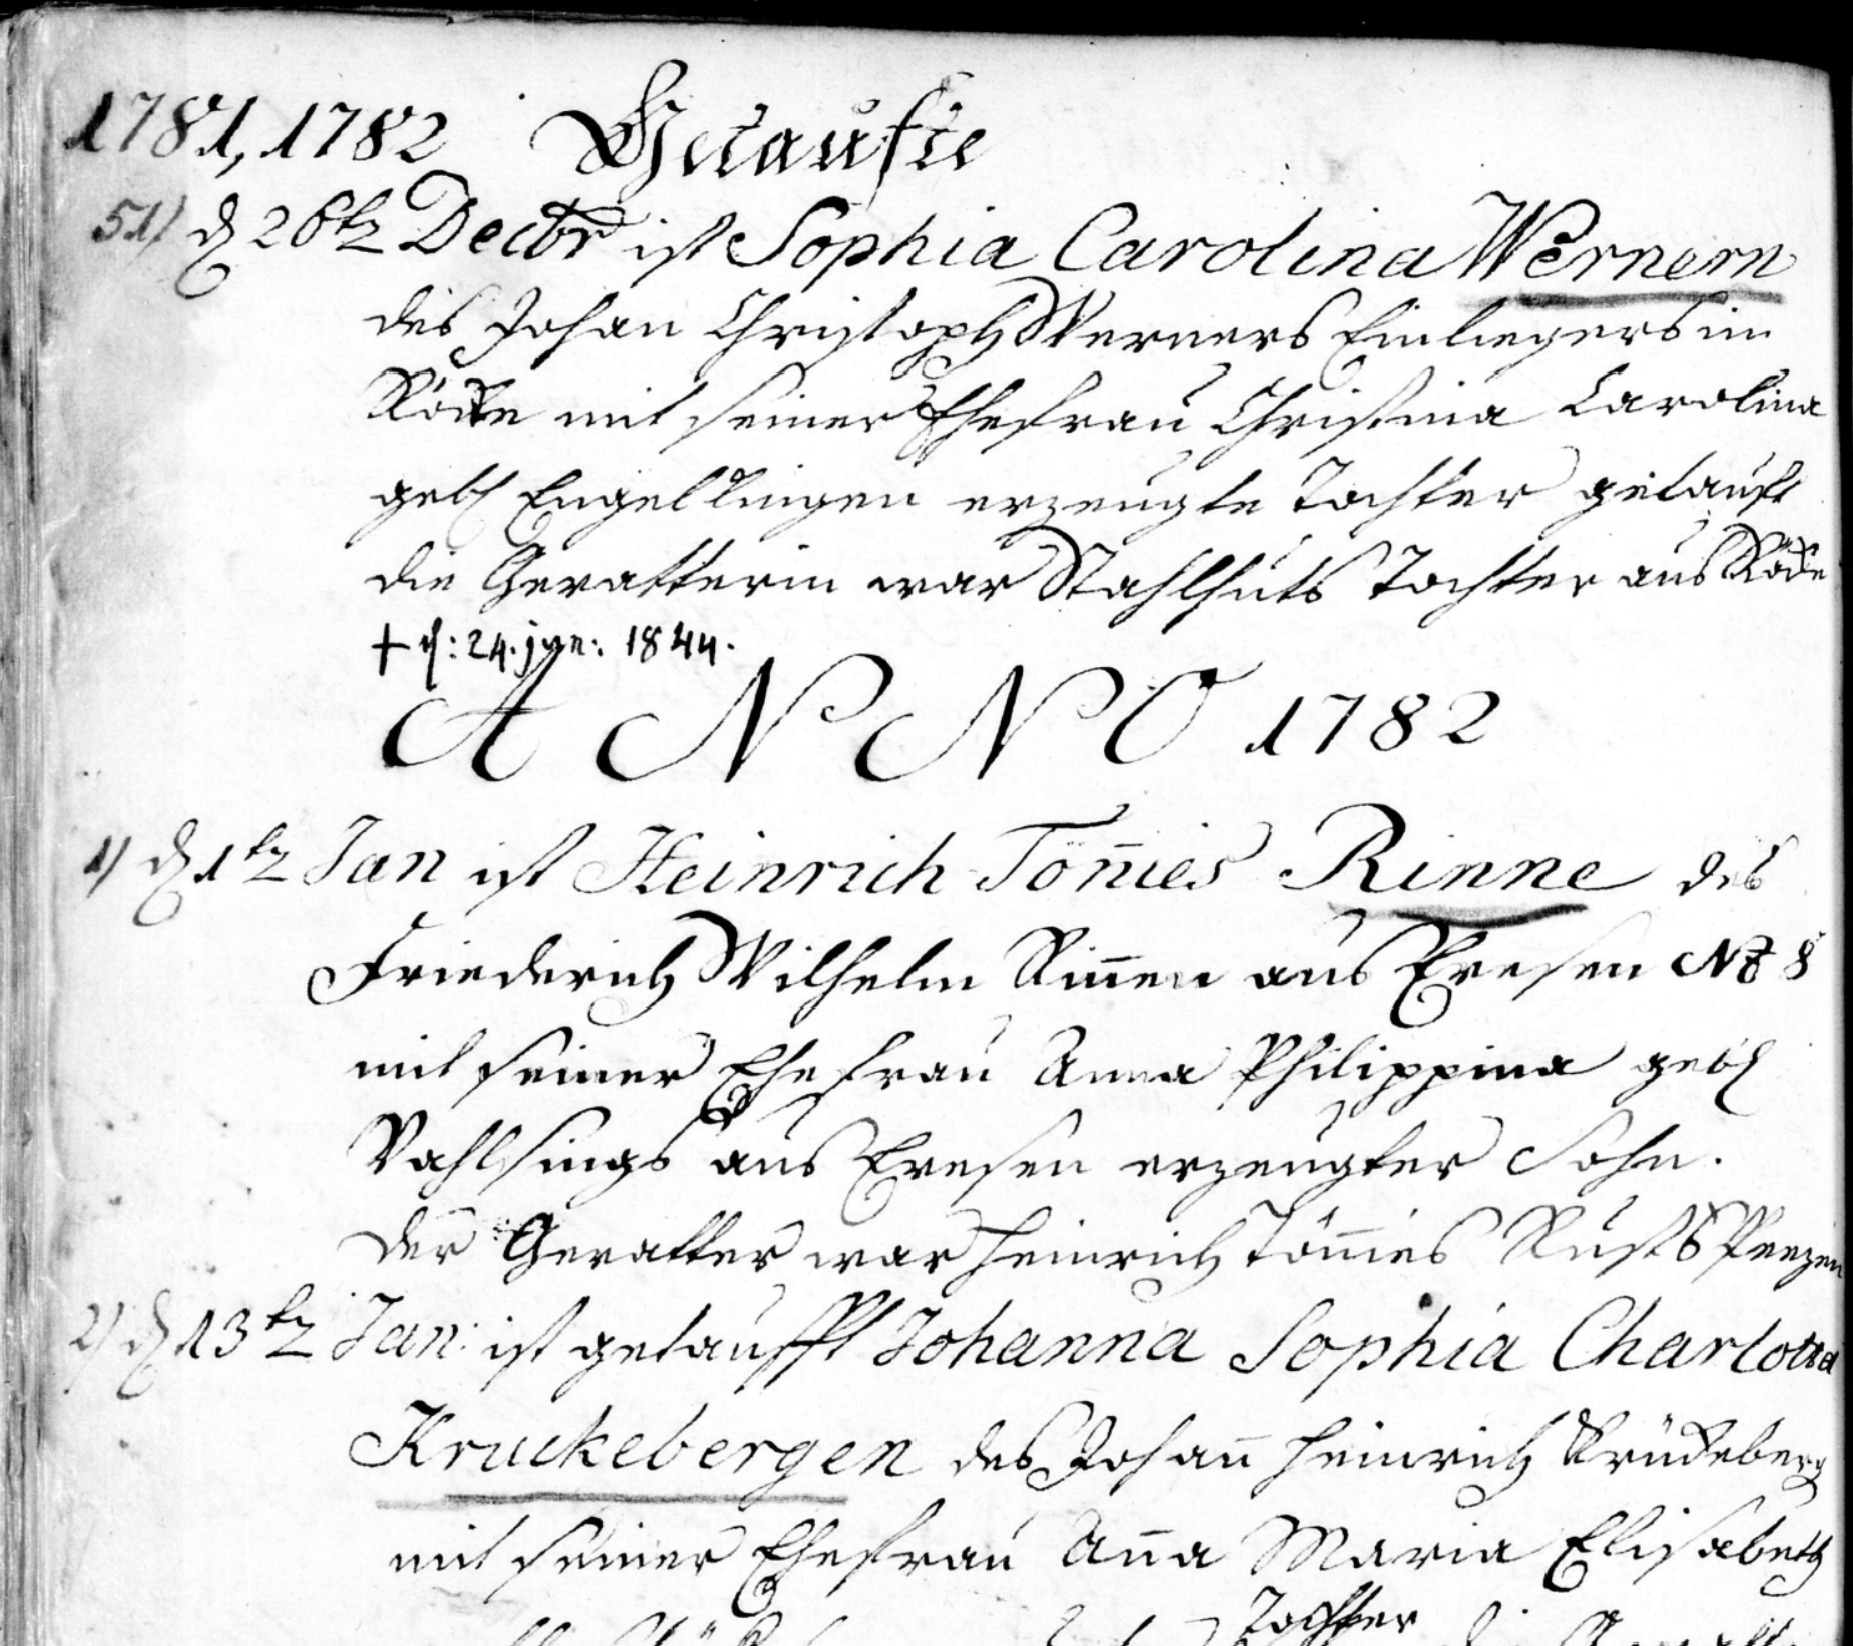 1781, 1782 Getaufte
51) d 26t Decbr ist Sophia Carolina Wernern
des Johan Christoph Werners Einliegers in
Röcke mit seiner Ehefrau Christina Carolina
geb Engelkingen erzeugte Tochter getauft
die Gevatterin war Stahlhuts Tochter aus Röcke
+ d: 24. 1844.
ANNO 1782
1) d 1t Jan ist Heinrich Tön̄ies Rinne des
Friederich Wilhelm Rin̄en aus Evesen No 8
mit seiner Ehefrau Anna Philippina geb
Vahlsings aus Evesen erzeugter Sohn.
der Gevatter war Heinrich Tön̄ies Rusts Peezen
2) d 13t Jan: ist getaufft Johanna Sophia Charlotta
Kruckebergen des Johan̄ Heinrich Krückeberg
mit seiner Ehefrau An̄a Maria Elisabeth
Tochter die